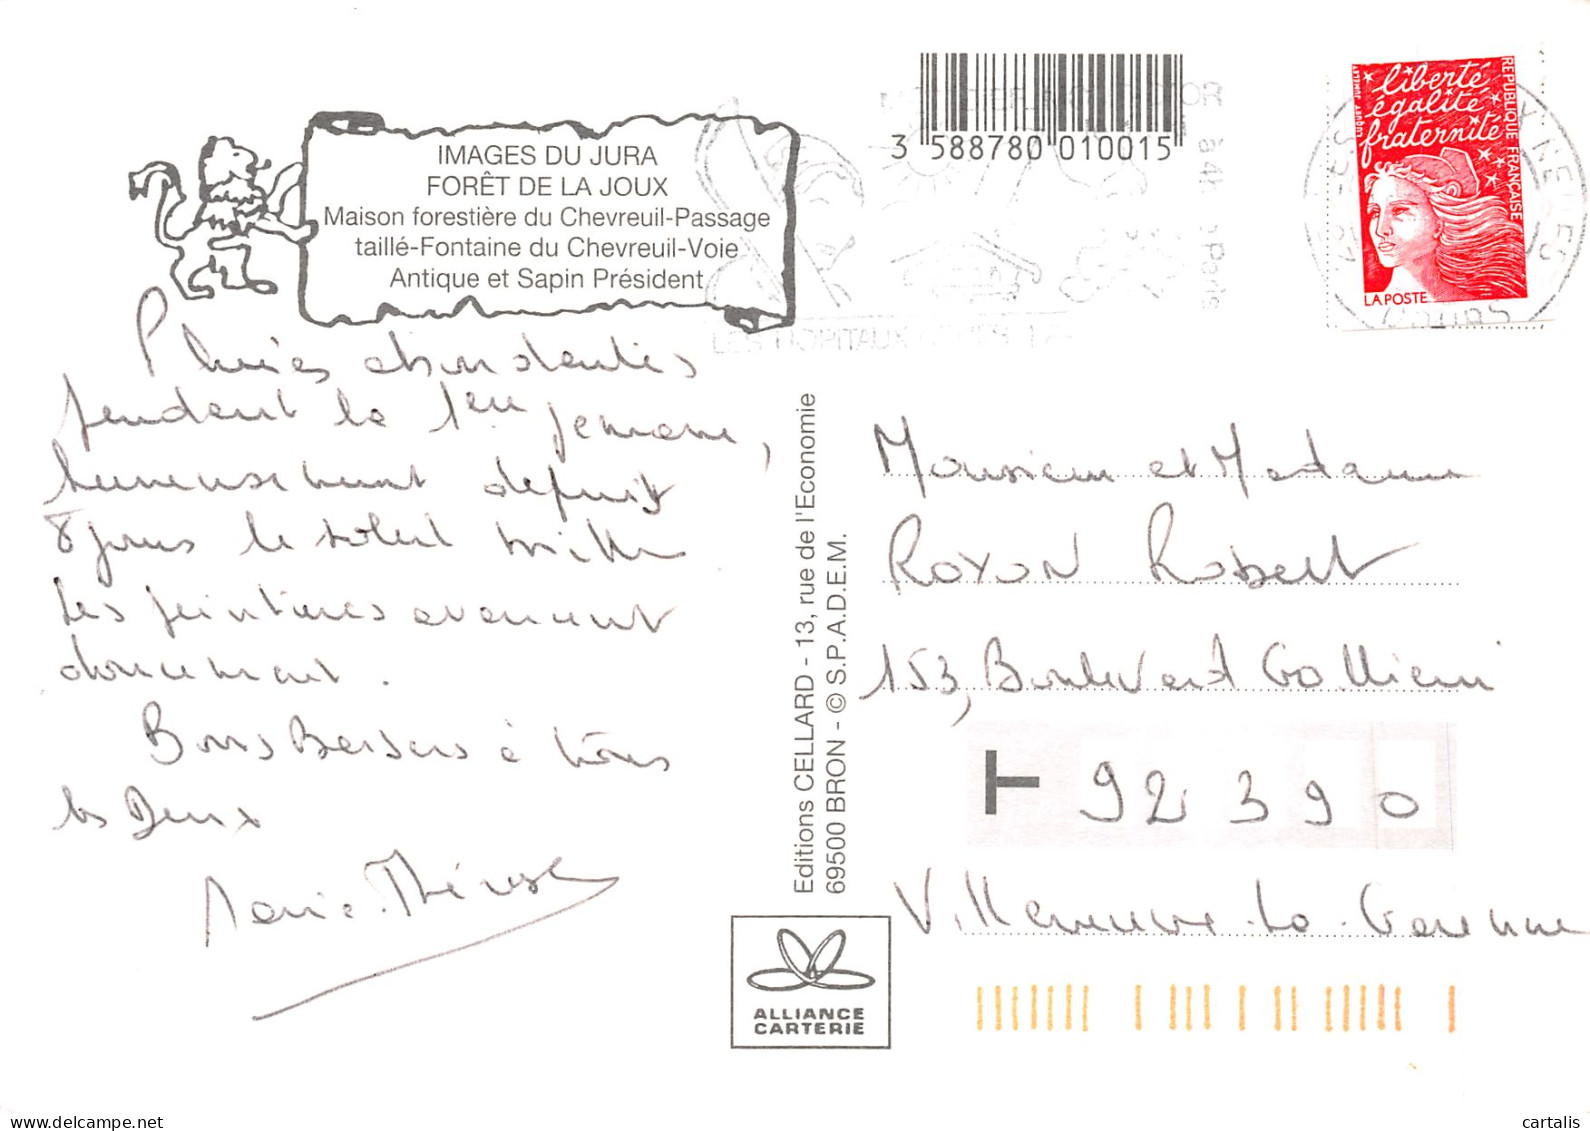 IMAGES DU JURA
FORÊT DE LA JOUX
Maison forestière du Chevreuil-Passage
taillé-Fontaine du Chevreuil-Voie
Antique et Sapin Président
3 588780 010015
liberté
égalité
fraternité
REPUBLIQUE FRANÇAISE
LA POSTE
LES HOPITAUX
Pluies abondantes
pendant la 1ère semaine,
heureusement depuis
8 jours le soleil brille
Les peintures avancent
doucement.
Bons Baisers à tous
les Deux
Marie-Thérèse
Editions CELLARD - 13, rue de l'Economie
69500 BRON - © S.P.A.D.E.M.
ALLIANCE
CARTERIE
Monsieur et Madame
ROYON Robert
153, Boulevard Gallieni
T 92 390
Villeneuve-La-Garenne
delcampe.net
cartalis